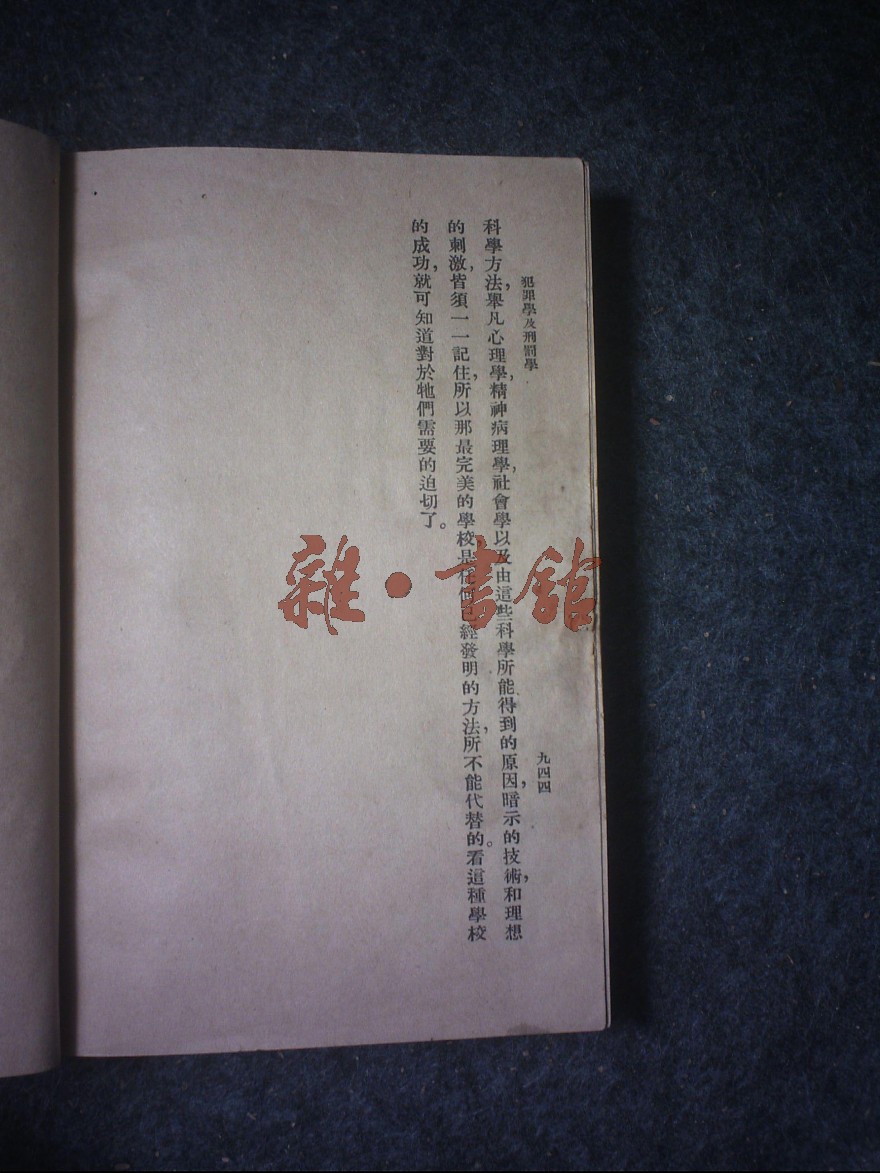 犯罪學及刑罰學
九四四
科學方法，舉凡心理學，精神病理學，社會學以及由這些科學所能得到的原因，暗示的技術，和理想
的刺激，皆須一一記住，所以那最完美的學校是任何已經發明的方法，所不能代替的。看這種學校
的成功，就可知道對於牠們需要的迫切了。
雜·書館